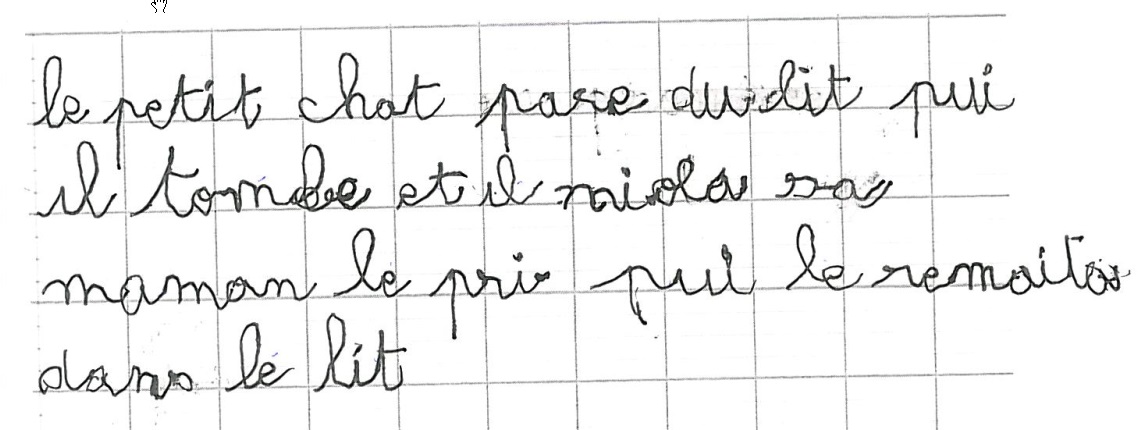 le petit chat passe du dit pui
il tombe et il miola sa
maman le pri pui le remaita
dans le lit